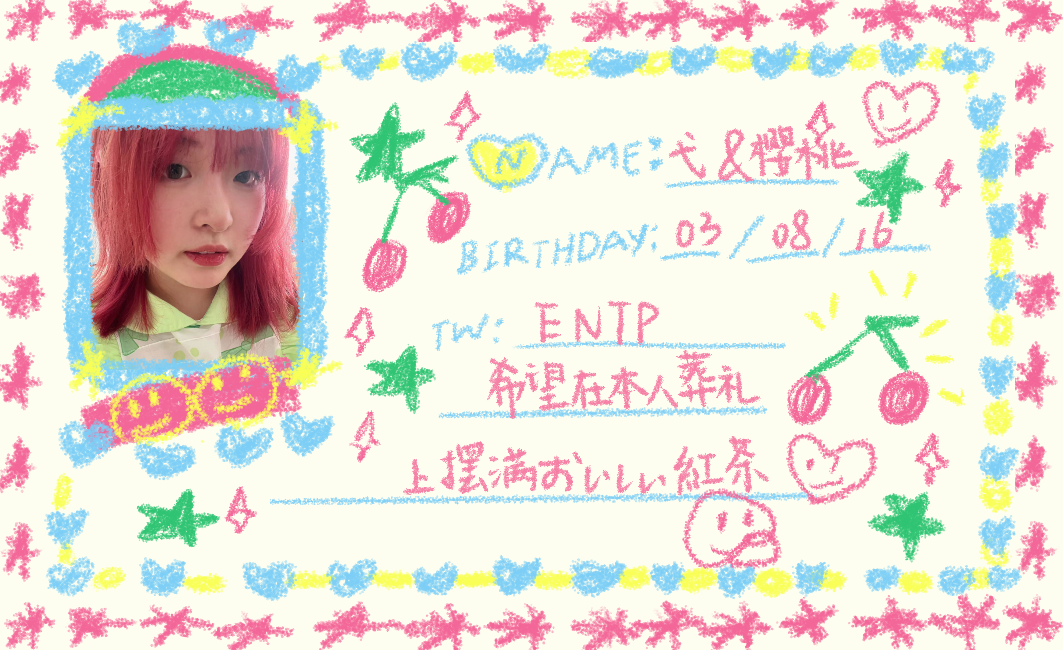 NAME: 弋&樱桃
BIRTHDAY: 03/08/16
TW: ENTP
希望在本人葬礼
上摆满おいしい紅茶